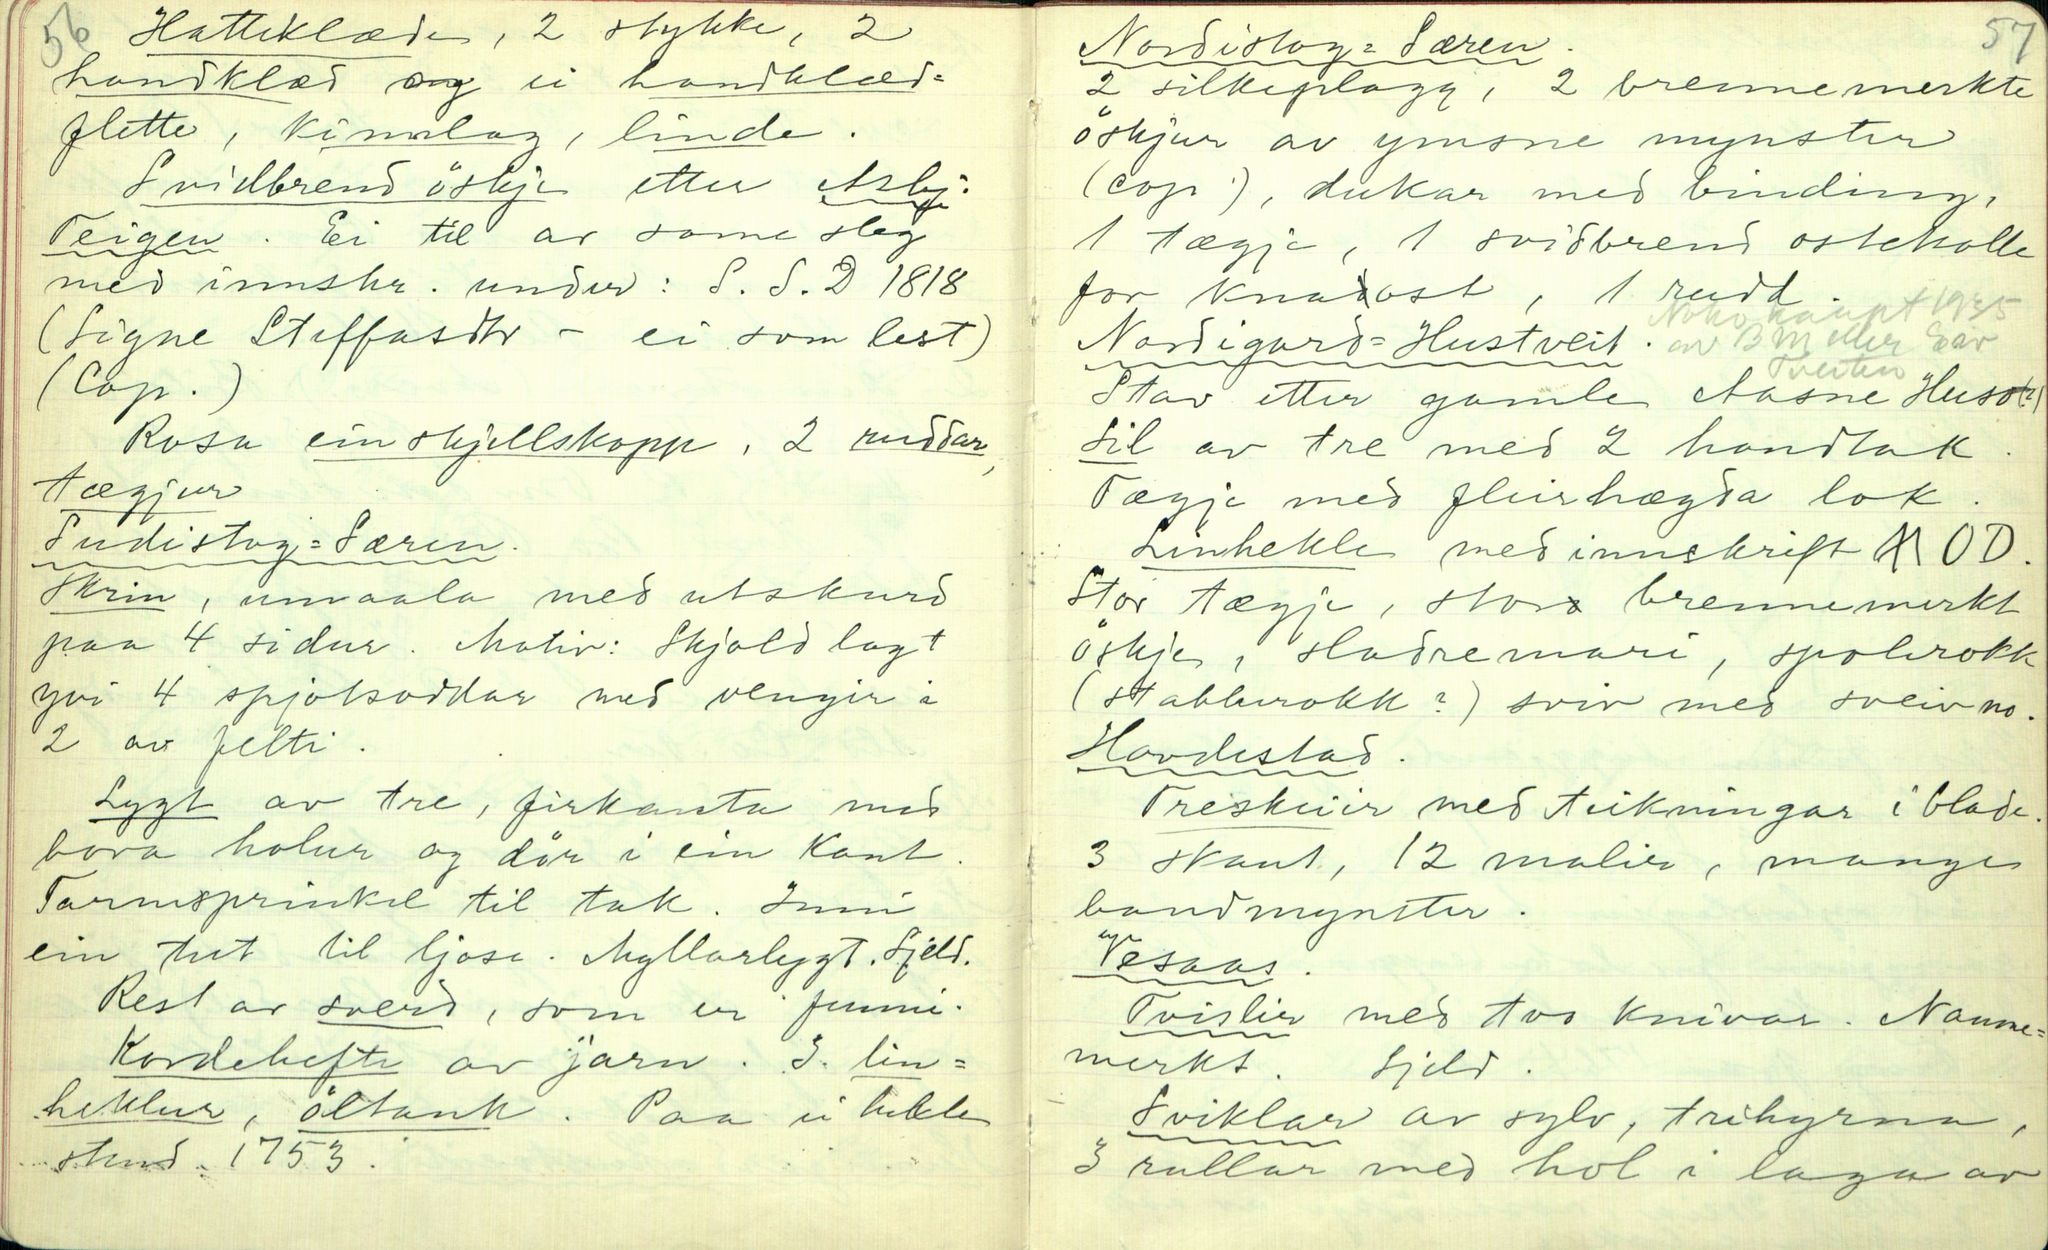 56
Hatteklæde, 2 stykke, 2
handklæd og ei handklæd=
flette, kinnlag, linde.
Svidbrend öskje etter Asbj.
Teigen. Ei til av same slag
med innskr. under: S. S. D 1818
(Signe Steffasdtr - ei som lest)
(Cop.)
Rosa ein skjellskopp, 2 ruddar,
tægjur
Sudistog=Særen.
Skrin, umaala med utskurd
paa 4 sidur. Motiv: Skjold lagt
yvi 4 spjotsoddar med vengir i
2 av felti.
Lygt av tre, firkanta med
bora holur og dör i ein kant.
Tarmsprinkel til tak. Inni
ein tut til ljose. Myllarlygt. Sjeld.
Rest av sverd, som er funni.
Kordehefte av jarn. 3. lin=
heklur, öltank. Paa ei hekle
stend: 1753.
57
Nordistog=Særen.
2 silkeplagg, 2 brennemerkte
öskjur av ymsne mynster
(cop.), dukar med binding,
1 tægje, 1 svidbrend ostekolle
for knadost, 1 rudd.
Noko kaupt 1935
Nordigard=Hustveit. av BM eller Eiv
Tveiten
Stav etter gamle Aasne Hust(?)
Sil av tre med 2 handtak.
Tægje med fleirhægda lok.
Linhekle med innskrift AOD.
Stor tægje, stor brennemerkt
öskje, sladremari, spolerokk
(stabberokk?) sviv med sveiv no.
Hovdestad.
Treskeier med teikningar i blade.
3 skaut, 12 malier, mange
bandmynster.
Vesaas.
Tvislir med tvo knivar. Namne=
merkt. Sjeld.
Sviklar av sylv, trihyrna,
3 rullar med hol i laga av